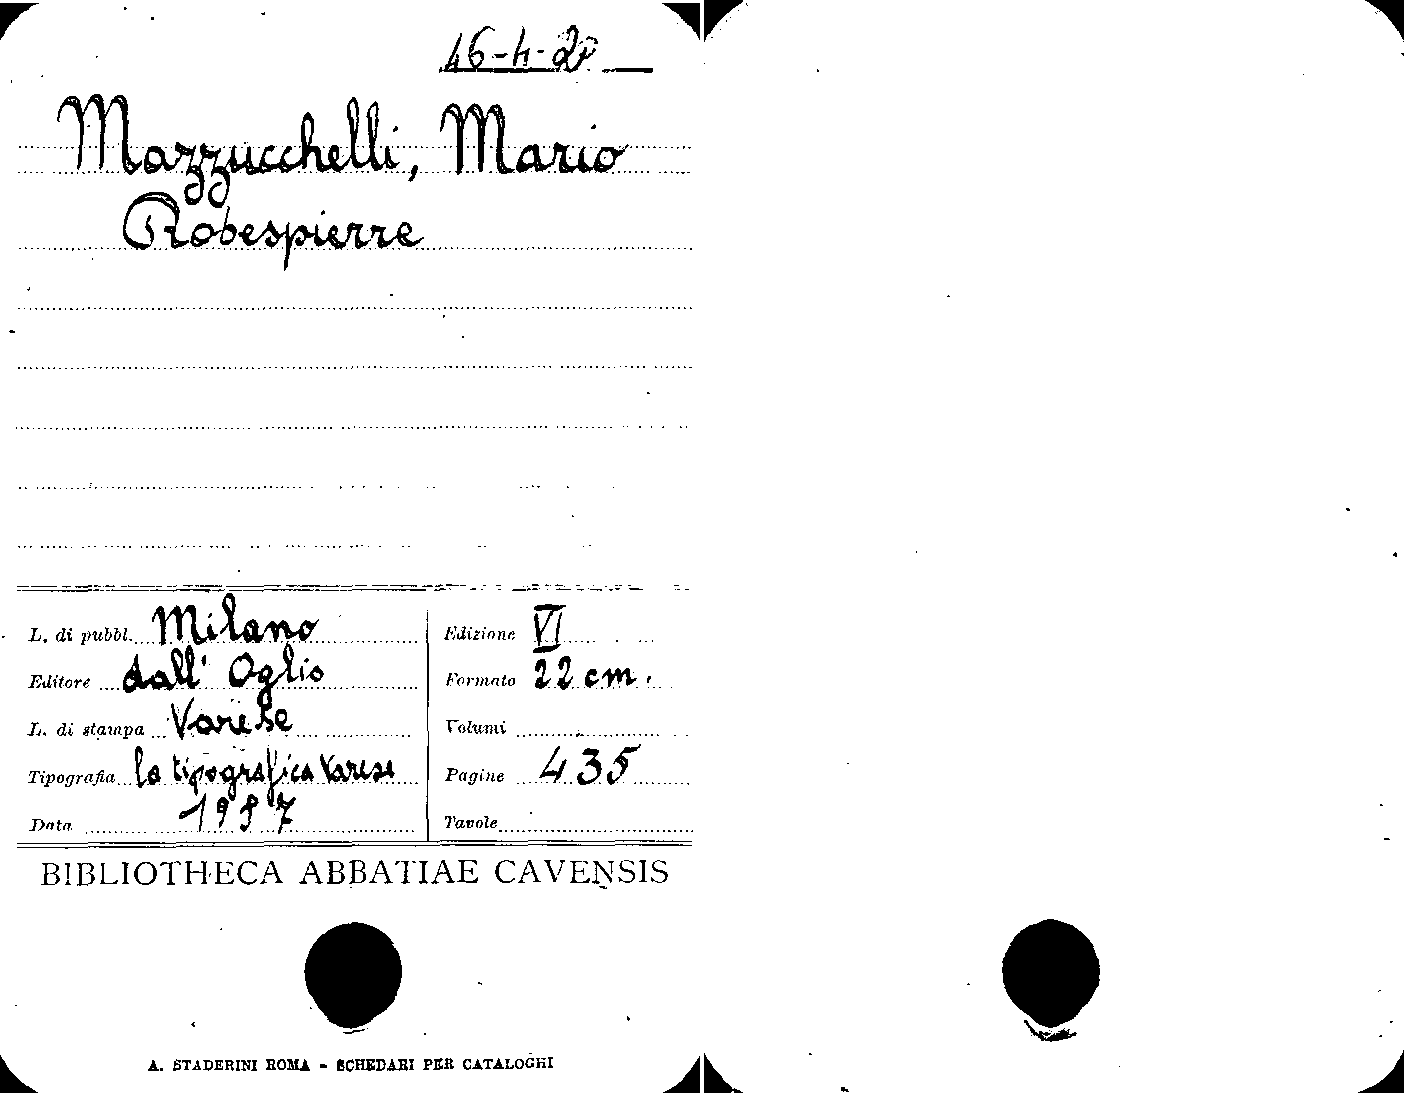 46-4-20
Mazzucchelli, Mario
Robespierre
L. di pubbl. Milano
Editore dall' Oglio
L. di stampa Varese
Tipografia la tipografica Varese
Data 1957
Edizione VI
Formato 22 cm.
Volumi
Pagine 435
Tavole
BIBLIOTHECA ABBATIAE CAVENSIS
A. STADERINI ROMA - SCHEDARI PER CATALOGHI